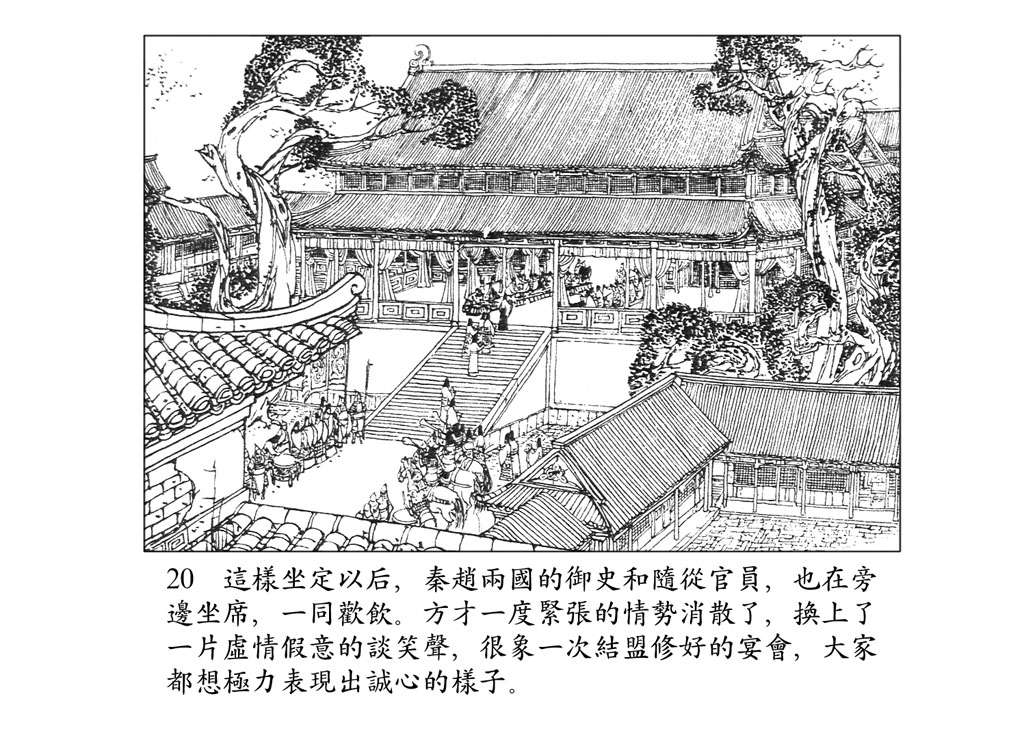 20 這樣坐定以后，秦趙兩國的御史和隨從官員，也在旁
邊坐席，一同歡飲。方才一度緊張的情勢消散了，換上了
一片虛情假意的談笑聲，很象一次結盟修好的宴會，大家
都想極力表現出誠心的樣子。